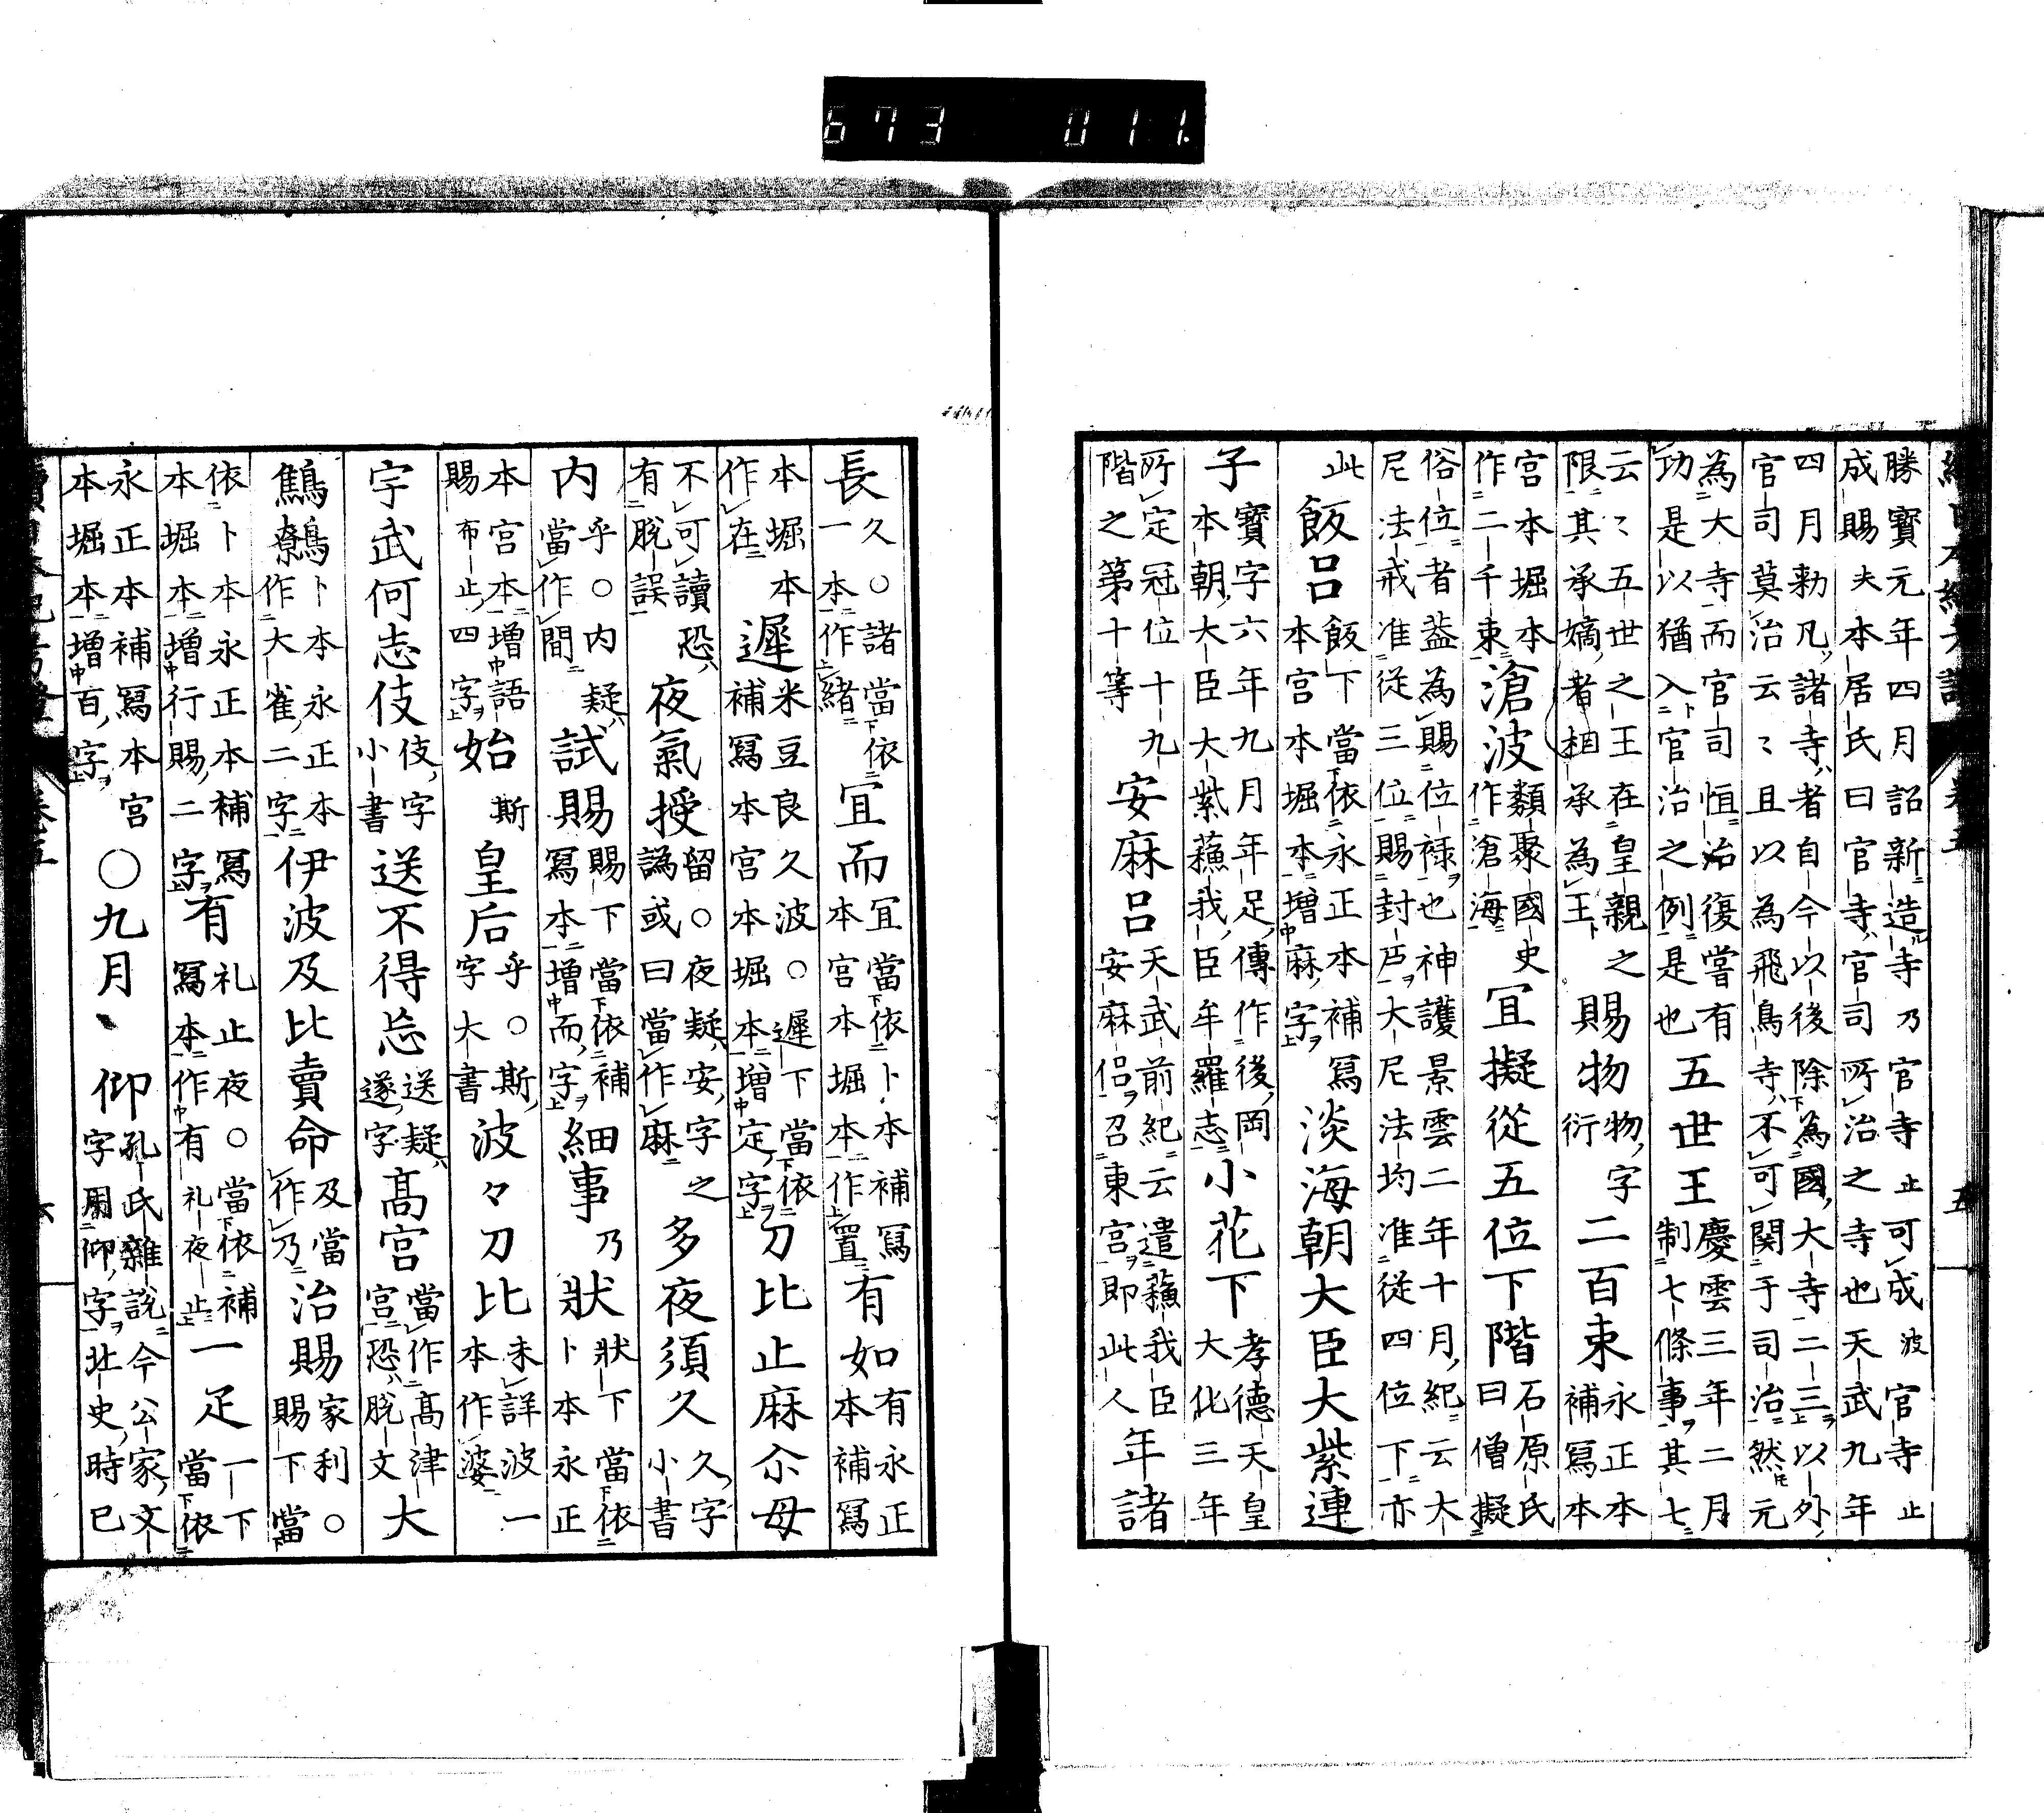 673 011.
勝寶元年四月詔新造寺乃官寺止可成波官寺止
成賜夫本居氏曰官寺官司所治之寺也天武九年
四月勅凡諸寺者自今以後除為國大寺二三以外
官司莫治云〻且以為飛鳥寺不可関于司治然元
為大寺而官司恒治復嘗有
功是以猶入官治之例是也
五世王
慶雲三年二月
制七條事其七
云〻五世之王在皇親之
限其承嫡者相承為王
賜物
物字
衍
二百束
永正本
補寫本
宮本堀本
作二千束
滄波
類聚國史
作滄海
宜擬從五位下階
石原氏
曰僧擬
俗位者益為賜位祿也神護景雲二年十月紀云大
尼法戒准從三位賜封戸大尼法均准從四位下亦
此
飯呂
飯下當依永正本補寫
本宮本堀本増麻字
淡海朝大臣大紫連
子
寶字六年九月年足傳作後岡
本朝大臣大紫蘓我臣牟羅志
小花下
孝德天皇
大化三年
所定冠位十九
階之第十等
安麻呂
天武前紀云遣蘓我臣
安麻侶召東宮即此人
年諸
長
久○諸當依
一本作緒
宜而
宜當依卜本補寫
本宮本堀本作置
有如
有永正
本補寫
本堀本
作在
遲
米豆良久波○遲下當依
補寫本宮本堀本増定字
刀比止麻尒母
不可讀恐
有脫誤
夜氣授
留○夜疑安字之
譌或曰當作麻
多夜須久
久字
小書
内
乎○内疑
當作間
試賜
賜下當依補
寫本増而字
細事
乃
狀
狀下當依
卜本永正
本宮本増語
賜布止四字
始
斯
皇后
乎○斯
字大書
波々刀比
未詳波一
本作婆
宇武何志伎
伎字
小書
送不得忘
送疑
遂字
髙宮
當作髙津
宮恐脫文
大
鷦鷯
卜本永正本
作大雀二字
伊波及比賣命
及當
作乃
治賜
家利○
賜下當
依卜本永正本補寫
本堀本増行賜二字
有
礼止夜○當依補
寫本作有礼夜止
一足
一下
當依
永正本補寫本宮
本堀本増百字
○九月、仰
孔氏雜說今公家文
字用仰字北史時已